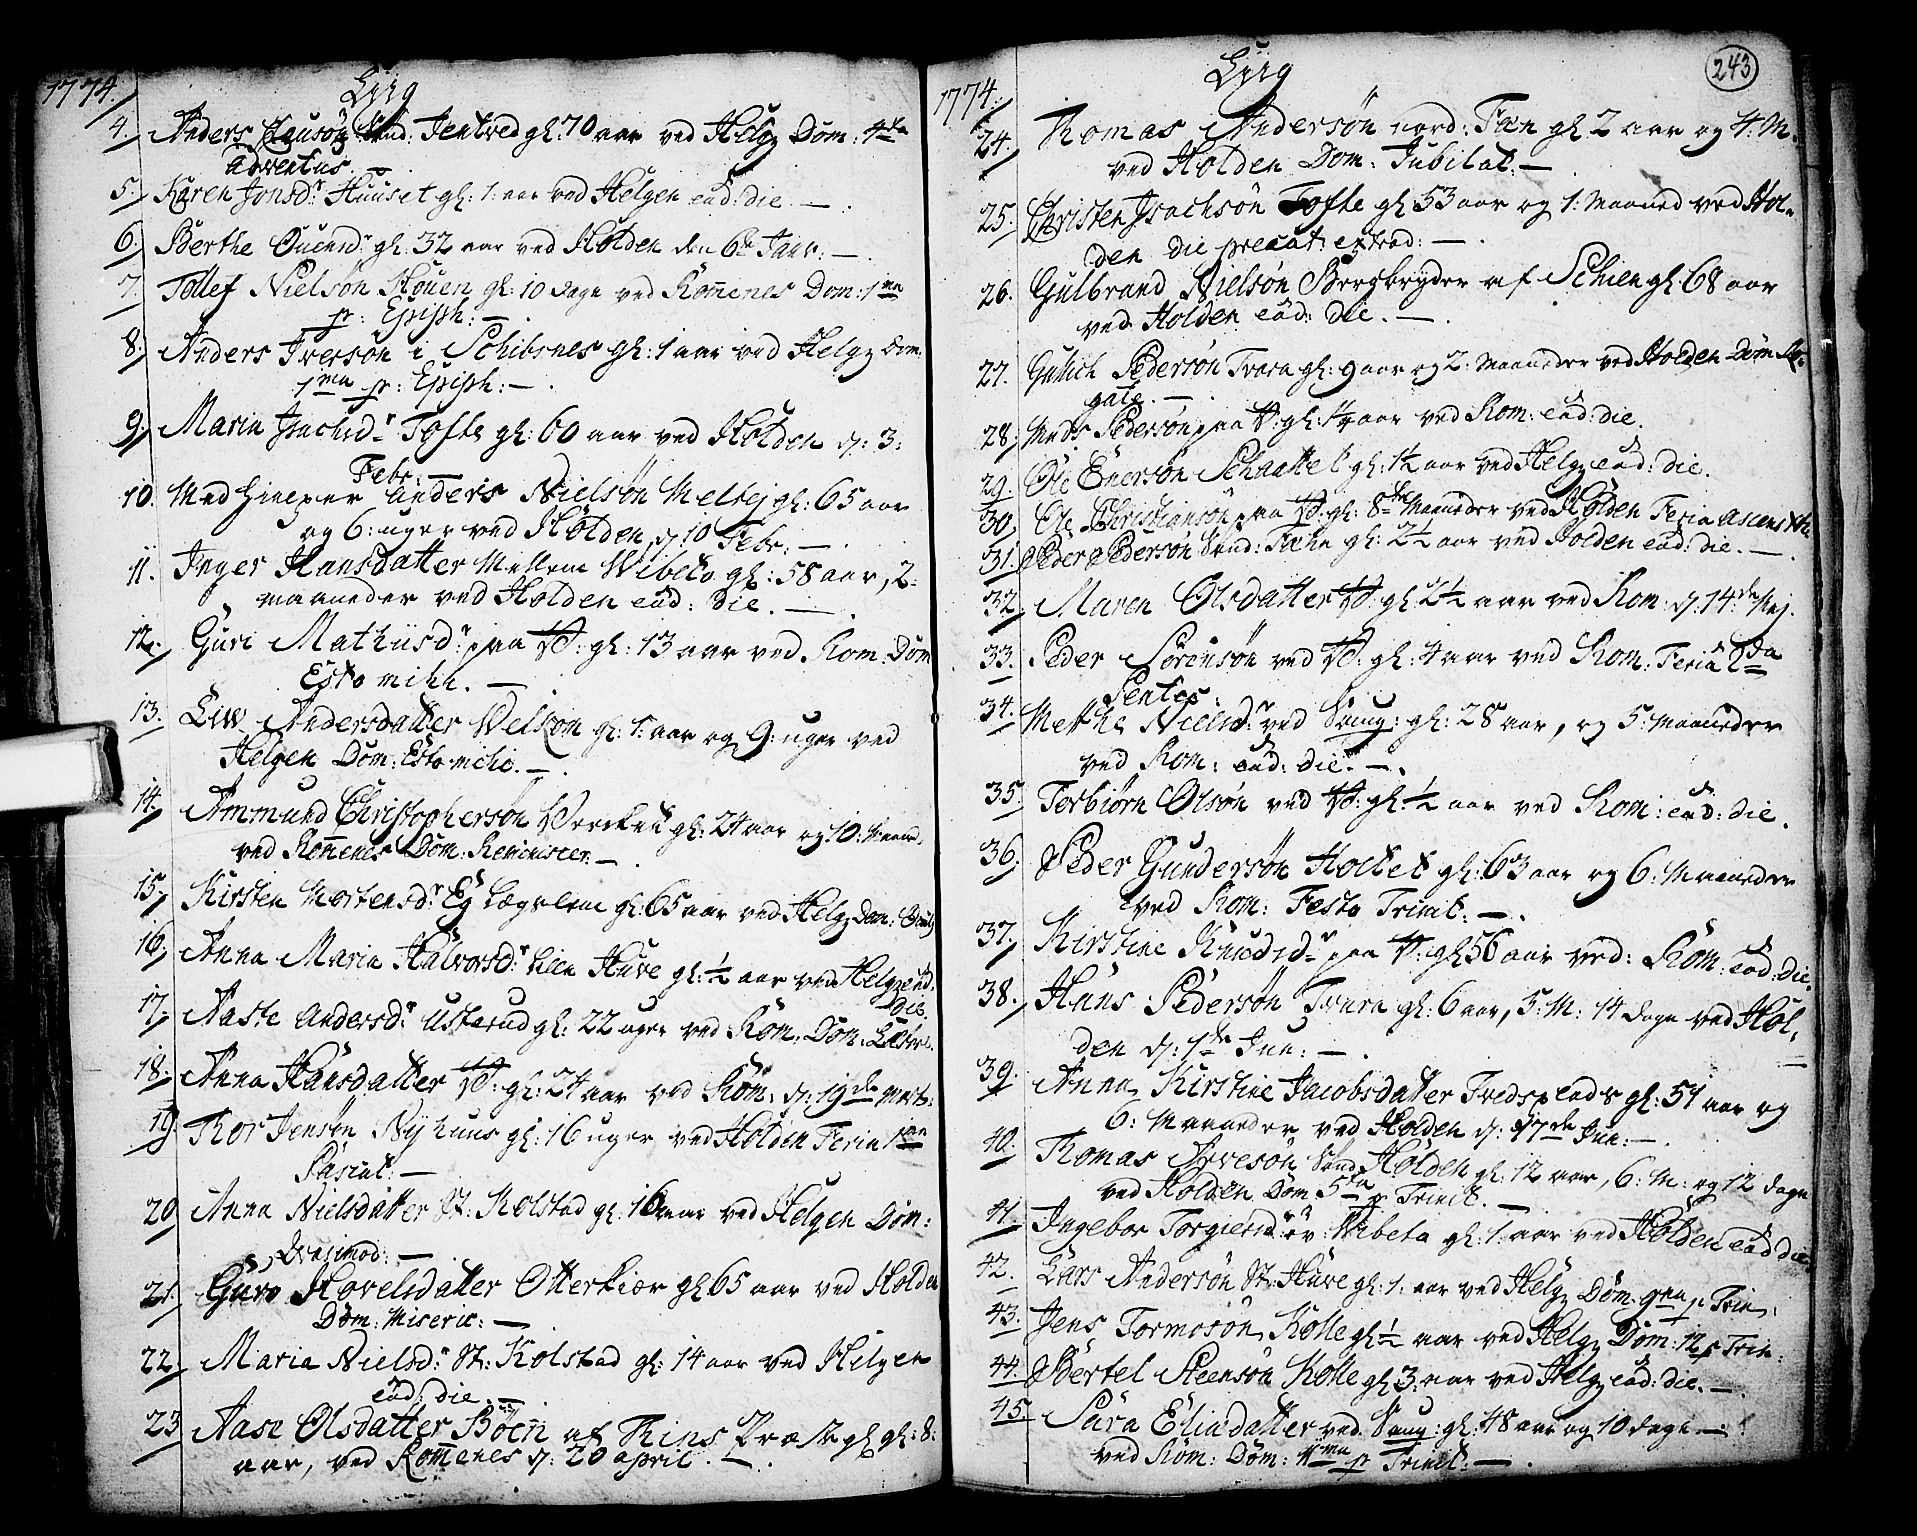 1774. Liig
4. Anders Clausøn Sund: Jentved gl: 70 aar ved Helg Dom: 4ta
Adventus. —
5. Karen Jonsd:r Huuset gl: 1: aar ved Helgen ead: die. — .
6. Berthe Ouensd:r gl: 32 aar ved Holden den 6te Janv: — .
7. Tollef Nielsøn Houen gl: 10 dage ved Romenes Dom: 1ma
p: Epiph: — .
8. Anders Iversøn i Schibsnes gl: 1 aar ved Helg Dom.
1ma p: Epiph: — .
9. Maria Isachsd:r Tofte gl: 60 aar ved Holden d: 3:
Febr: —
10. Medhielper Anders Nielsøn Melbej gl: 65 aar
og 6: uger ved Holden, d: 10 Febr: — .
11. Inger Hansdatter Mellem Wibeto gl: 58 aar, 2:
maaneder ved Holden ead: die. — .
12. Guri Mathiisd:r paa V: gl: 13 aar ved Rom: Dom
Esto mihi. — .
13. Liw Andersdatter Welson gl: 1: aar og 9: uger ved
Helgen Dom: Esto mihi. — .
14. Ammund Christophersøn Verket gl: 24 aar og 10: Maan.
ved Romenes Dom: Reminiscer: — .
15. Kirsten Mortensd:r Eg Lægslem gl: 65 aar ved Helg Dom: Oculi
16. Anna Maria Halvorsd:r Lien Huve gl: ½ aar ved Helg ead.
die.
17. Aaste Andersd:r Usterud gl: 22 uger ved Rom: Dom: Lætare.
18. Anna Hansdatter V: gl: 24 aar ved Rom: d: 19de Mart:
19. Thor Jensøn Nyhuus gl: 16 uger ved Holden Feria 1ma
Pascat: —
20. Anna Nielsdatter St: Kolstad gl: 16 aar ved Helgen Dom:
Qvasimod: —
21. Guro Hovelsdatter Otterkiær gl 65 aar ved Holden
Dom: Miseric: —
22. Maria Nielsd:r St: Kolstad gl: 14 aar ved Helgen
ead: die. —
23. Aase Olsdatter Bøen af Thins Præstegl gl: 8:
aar, ved Romenes d: 20 April. — .
243
1774. Liig
24. Thomas Andersøn nord: Fæn gl: 2 aar og 4: M.
ved Holden Dom: Jubilat: —
25. Christen Isachsøn Tofte gl 53 aar og 1: Maaned ved Hol-
den die precat: extrad: — .
26. Gulbrand Nielsøn Bergbryder af Schien gl: 68 aar
ved Holden ead: die. — .
27. Gullich Pedersøn Tvara gl: 9 aar og 2: Maaneder ved Holden Dom Ro-
gate. — .
28. Mads Pedersøn paa V: gl: ¼ aar ved Rom: ead: die.
29. Ole Enersøn Schaattet gl: 1½ aar ved Helg ead: die.
30. Ole Christiansøn paa V: gl: 8te Maaneder ved Holden Feria Ascens Xti.
31. Peder Pedersøn Sund: Fæhn gl: 2½ aar ved Holden ead: die. — .
32. Maren Olsdatter V: gl 2½ aar ved Rom: d: 14de Maj.
33. Peder Sørensøn ved V: gl: 4 aar ved Rom: Feria 2da
Pentec:
34. Methe Nielsd:r ved Saug: gl: 28 aar, og 5: Maaneder
ved Rom: ead: die. — .
35. Torbiørn Olsøn ved V: gl: ½ aar ved Rom: ead: die.
36. Peder Gundersøn Holtet gl: 63 aar og 6: Maaneder
ved Rom: Festo Trinit: — .
37. Kirstine Knudsd:r paa V: gl: 56 aar ved: Rom: ead: die.
38. Hans Pedersøn Tvara gl: 6 aar, 5: M: 14 dage ved Hol-
den d: 1te Jun: — .
39. Anna Kirstine Jacobsdatter Fredspeads gl: 51 aar og
6: Maaneder ved Holden d: 17de Jun: — .
40. Thomas Avesøn Sund Holden gl: 12 aar, 6: M: og 12 dage
ved Holden Dom 5ta p Trinit. —
41. Ingebor Torgiersd:r øv: Wibeta gl: 1: aar ved Holden ead die.
42. Lars Andersøn St: Huve gl: 1: aar ved Helg Dom: 9na p Trin:
43. Jens Tormosøn Kolle gl ½ aar ved Helg Dom: 12 p Trin:
44. Bertel Steensøn Kolle gl 3: aar ved Helg ead: die. — .
45. Sara Eliædatter ved Saug: gl: 48 aar og 10 dage —
ved Rom: Dom: 4ma p Trinit: — .